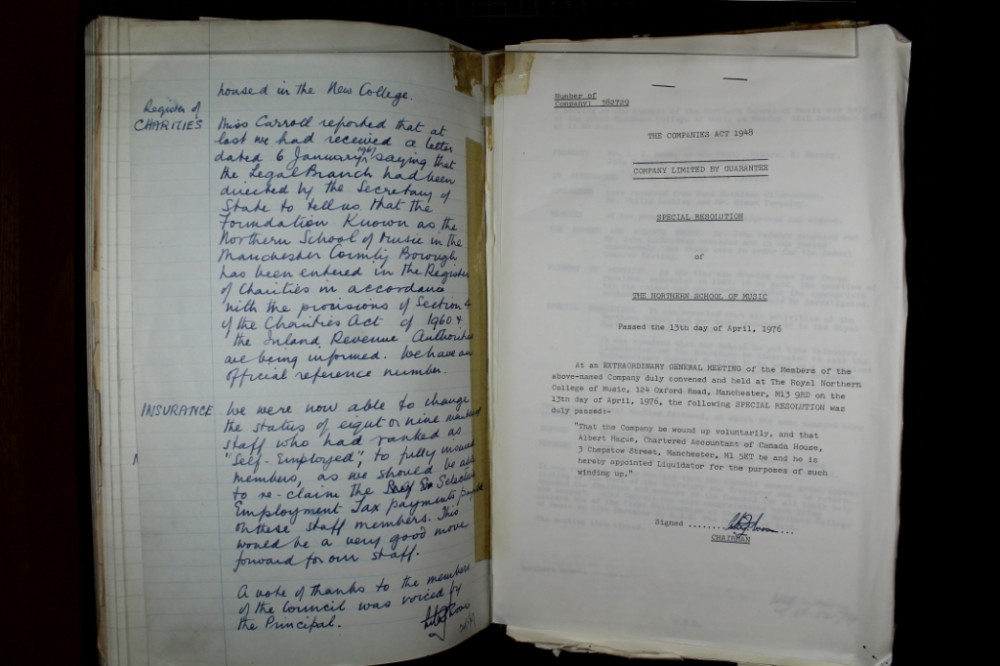 housed in the New College.
Register of
CHARITIES
Miss Carroll reported that at
last we had received a letter
dated 6 January 1967, saying that
the Legal Branch had been
directed by the Secretary of
State to tell us that the
Foundation Known as the
Northern School of Music in the
Manchester County Borough
has been entered in the Register
of Charities in accordance
with the provisions of Section 4
of the Charities Act of 1960 &
the Inland Revenue Authorities
are being informed. We have an
official reference number.
INSURANCE
We were now able to change
the status of eight or nine members
staff who had ranked as
"Self-Employed", to fully insured
members, as we should be able
to re-claim the Selective
Employment Tax payments
on these staff members. This
would be a very good move
forward for our staff.
A vote of thanks to the members
of the Council was voiced by
the Principal.
Number of
Company: 382729
THE COMPANIES ACT 1948
COMPANY LIMITED BY GUARANTEE
SPECIAL RESOLUTION
of
THE NORTHERN SCHOOL OF MUSIC
Passed the 13th day of April, 1976
At an EXTRAORDINARY GENERAL MEETING of the Members of the
above-named Company duly convened and held at The Royal Northern
College of Music, 124 Oxford Road, Manchester, M13 9RD on the
13th day of April, 1976, the following SPECIAL RESOLUTION was
duly passed:-
"That the Company be wound up voluntarily, and that
Albert Hague, Chartered Accountant of Canada House,
3 Chepstow Street, Manchester, M1 5ET be and he is
hereby appointed Liquidator for the purposes of such
winding up."
Signed ....................
CHAIRMAN